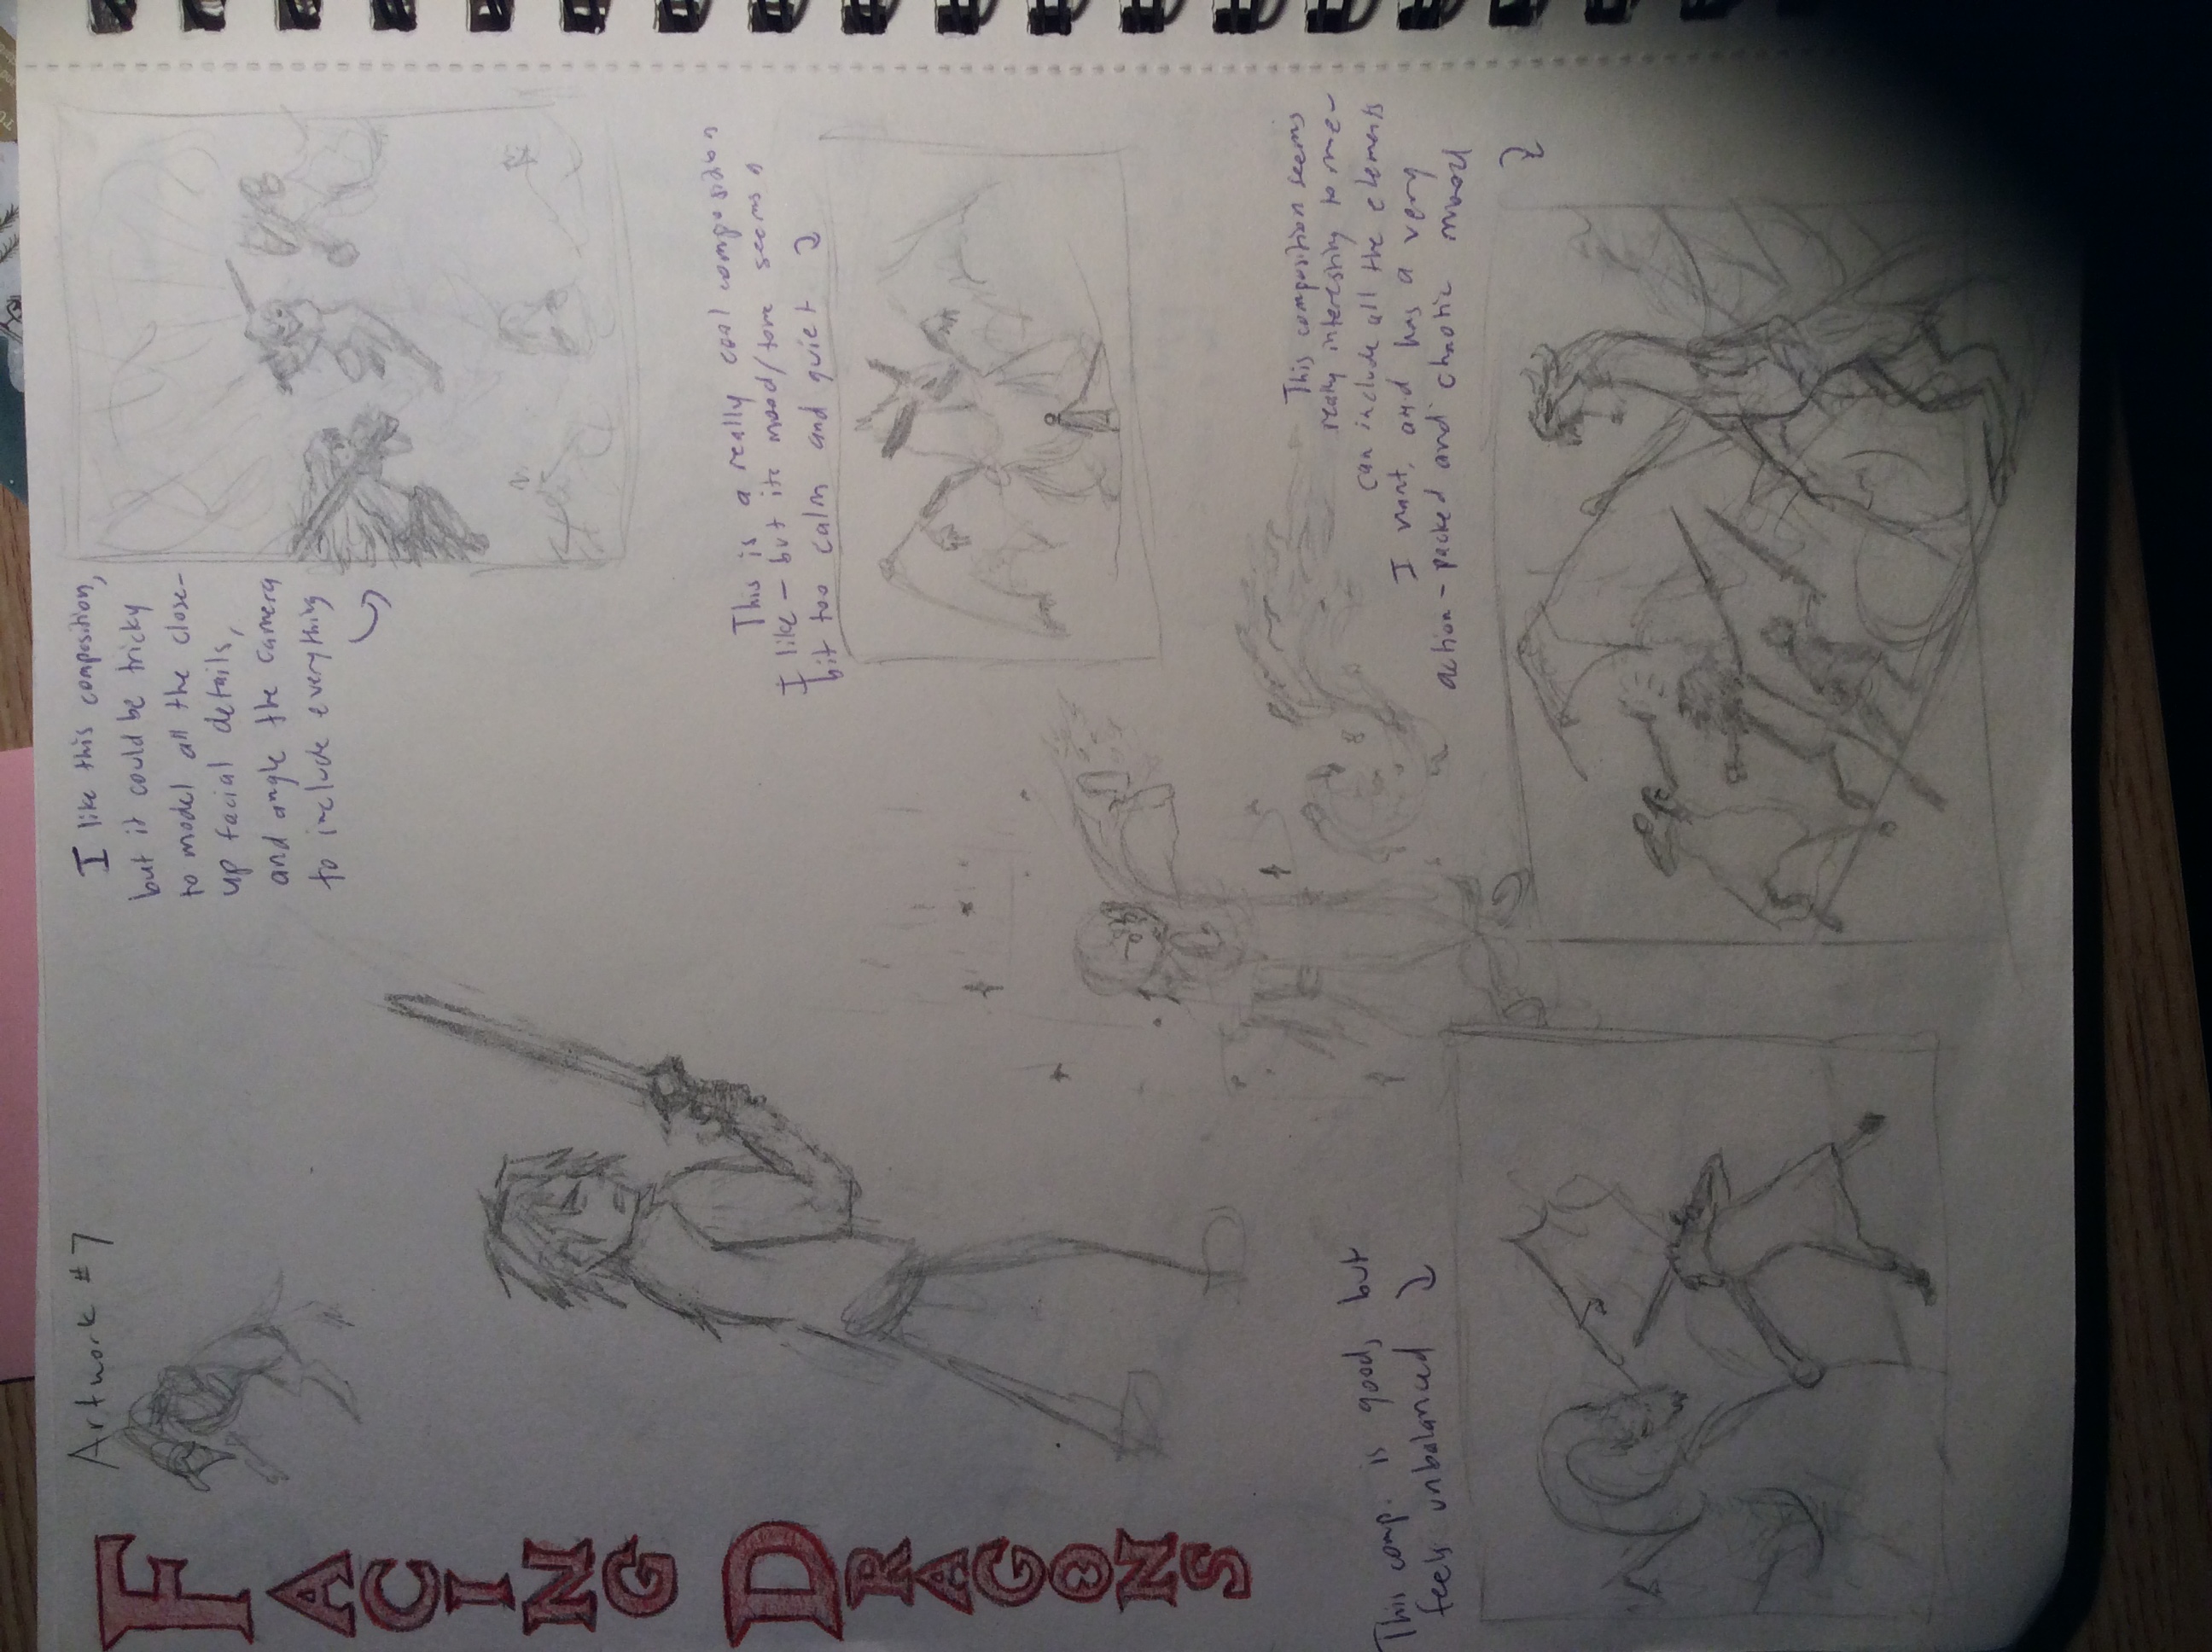 FACING DRAGONS
Artwork #7
I like this composition,
but it could be tricky
to model all the close-
up facial details,
and angle the camera
to include everything
This is a really cool composition
I like - but its mood/tone seems a
bit too calm and quiet
This composition seems
really interesting to me -
can include all the elements
I want, and has a very
action-packed and chaotic mood
This comp. is good, but
feels unbalanced